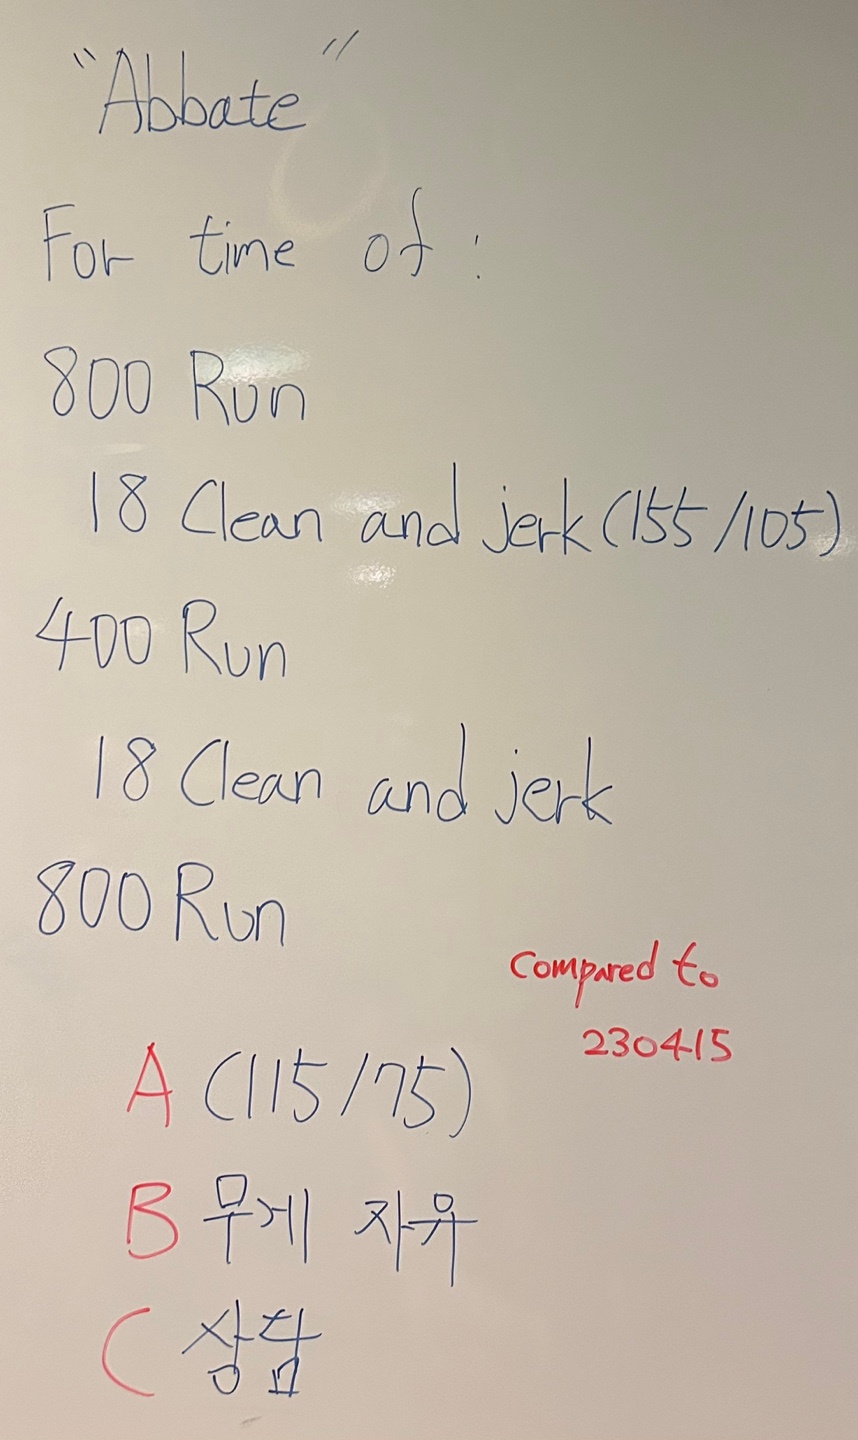 "Abbate"
For time of :
800 Run
18 Clean and jerk (155/105)
400 Run
18 Clean and jerk
800 Run
Compared to
230415
A (115/75)
B 무게 자유
C 상담